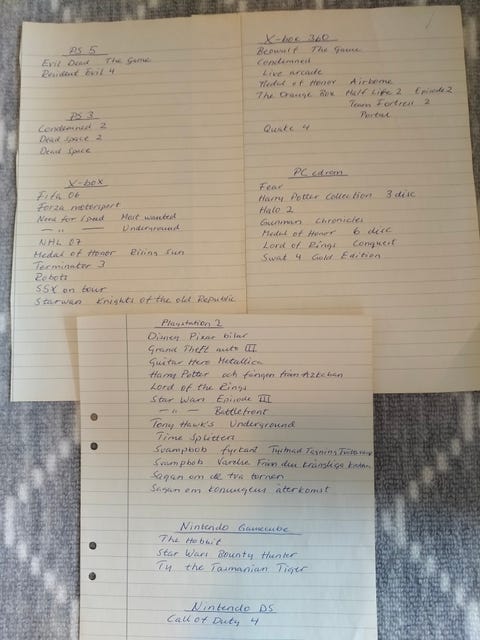 PS 5
Evil Dead The Game
Resident Evil 4
PS 3
Condemned 2
Dead space 2
Dead Space
X-box
Fifa 06
Forza motorsport
Need for Speed Most wanted
— 〃 — Underground
NHL 07
Medal of Honor Rising Sun
Terminator 3
Robots
SSX on tour
Starwars Knights of the old Republic
X-box 360
Beowulf The Game
Condemned
Live arcade
Medal of Honor Airborne
The Orange Box Half Life 2 Episode 2
Team Fortress 2
Portal
Quake 4
PC cdrom
Fear
Harry Potter Collection 3 disc
Halo 2
Gunman Chronicles
Medal of Honor 6 disc
Lord of Rings Conquest
Swat 4 Gold Edition
Playstation 2
Disney Pixar bilar
Grand Theft auto III
Guitar Hero Metallica
Harry Potter och fången från Azkaban
Lord of the Rings
Star Wars Episode III
— 〃 — Battlefront
Tony Hawk's Underground
Time Splitters
Svampbob fyrkant
Svampbob från den
Sagan om de två tornen
Sagan om konungens återkomst
Nintendo Gamecube
The Hobbit
Star Wars Bounty Hunter
Ty the Tasmanian Tiger
Nintendo DS
Call of Duty 4